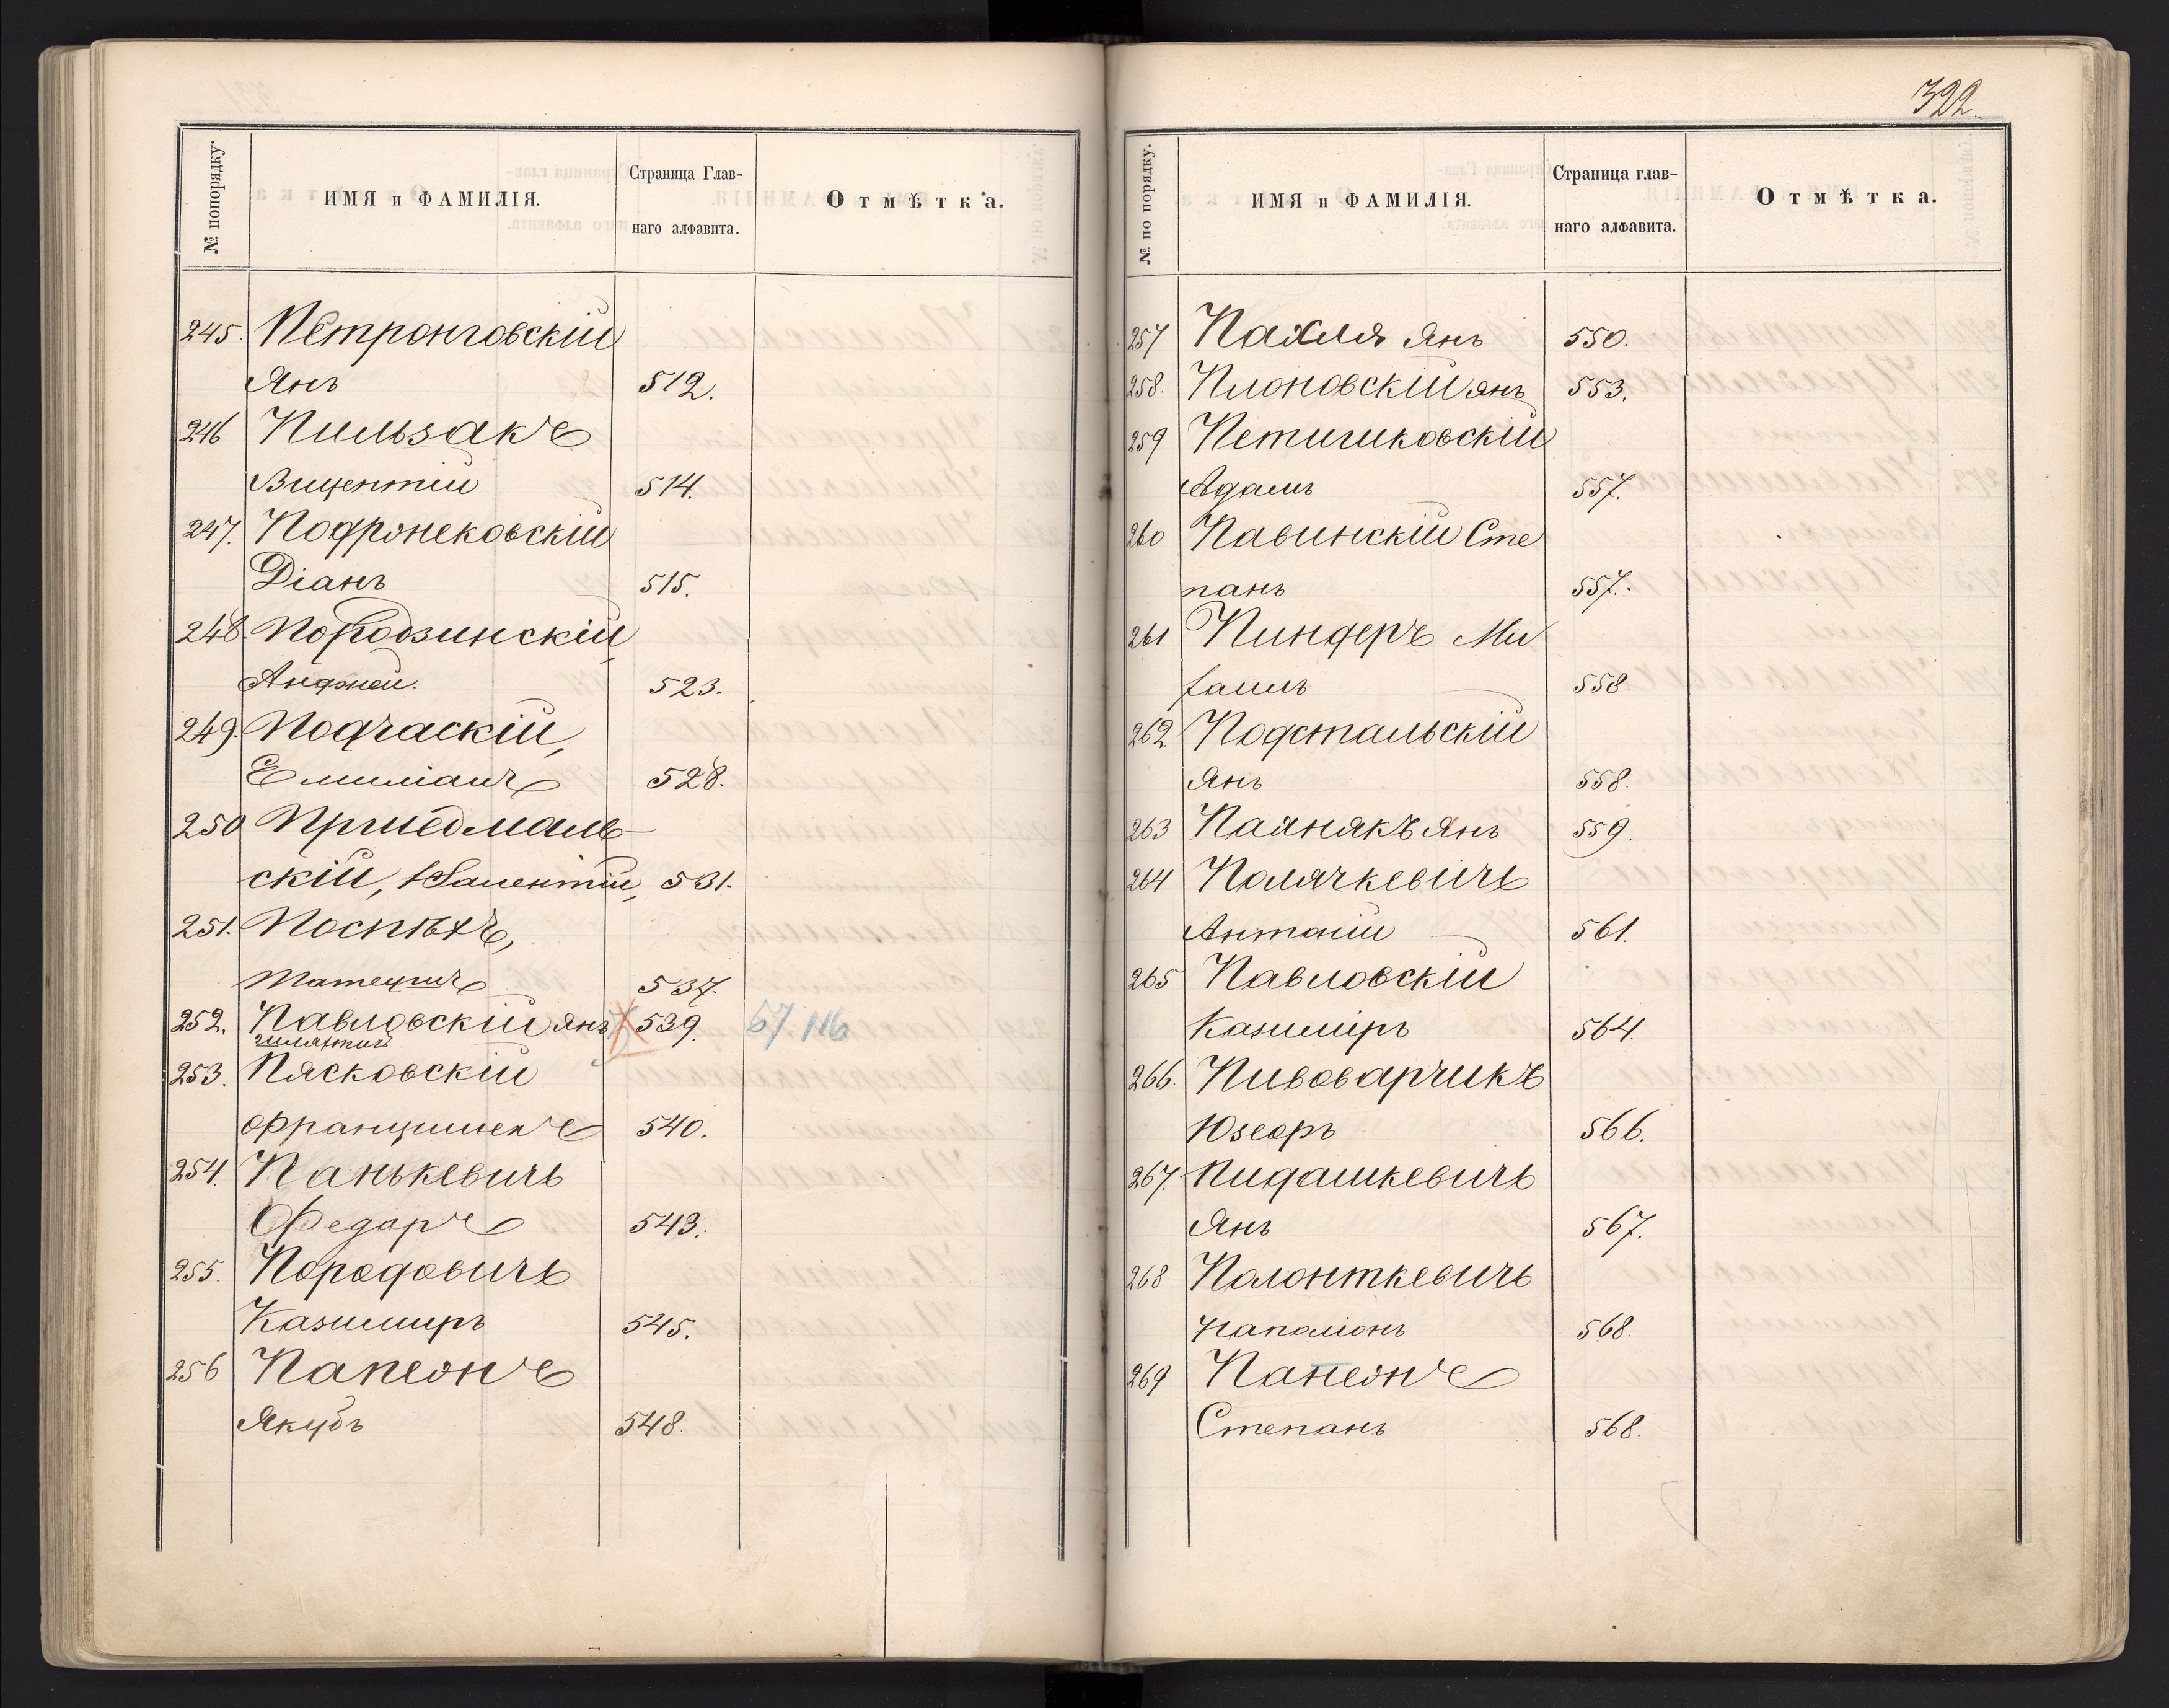 № попорядку.
ИМЯ и ФАМИЛІЯ.
Страница Глав-
наго алфавита.
Отмѣтка.
245. Петронговскій
Янъ 512.
246 Пильзакъ
Вицентій 514.
247. Подронековскій
Діанъ 515.
248. Породзинскій
Анджей. 523.
249. Подчаскій,
Емиліанъ 528.
250 Приедмаль-
скій, Валентій, 531.
251. Поспѣхъ,
537.
252. Павловскій Янъ 539. 57.116
шляхтичъ
253. Пясковскій
Францишекъ 540.
254. Панькевичъ
Федоръ 543.
255. Породовичъ
Казимиръ 545.
256 Папеонъ
Якубъ 548.
322.
№ по порядку.
ИМЯ и ФАМИЛІЯ.
Страница глав-
наго алфавита.
Отмѣтка.
257 Пахля Янъ 550.
258. Плоновскій Янъ 553.
259
Адамъ 557.
260 Павинскій Сте
панъ 557.
261 Пиндеръ Ми
хаилъ 558.
262. Подстальскій
Янъ 558.
263 Паянякъ Янъ 559.
264 Полячкевичъ
Антоній 561.
265 Павловскій
Казиміръ 564.
266. Пивоварчикъ
Юзефъ 566.
267. Пидашкевичъ
Янъ 567.
268 Полонткевичъ
Наполіонъ 568.
269 Панеонъ
Степанъ 568.